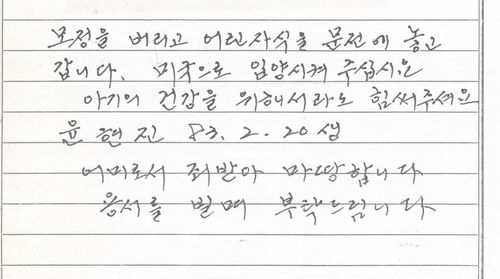 모정을 버리고 어린자식을 문전에 놓고
갑니다. 미국으로 입양시켜 주십시요
아기의 건강을 위해서라도 힘써주셔요
윤현진 83. 2. 20생
어미로서 죄받아 마땅합니다
용서를 빌며 부탁드립니다